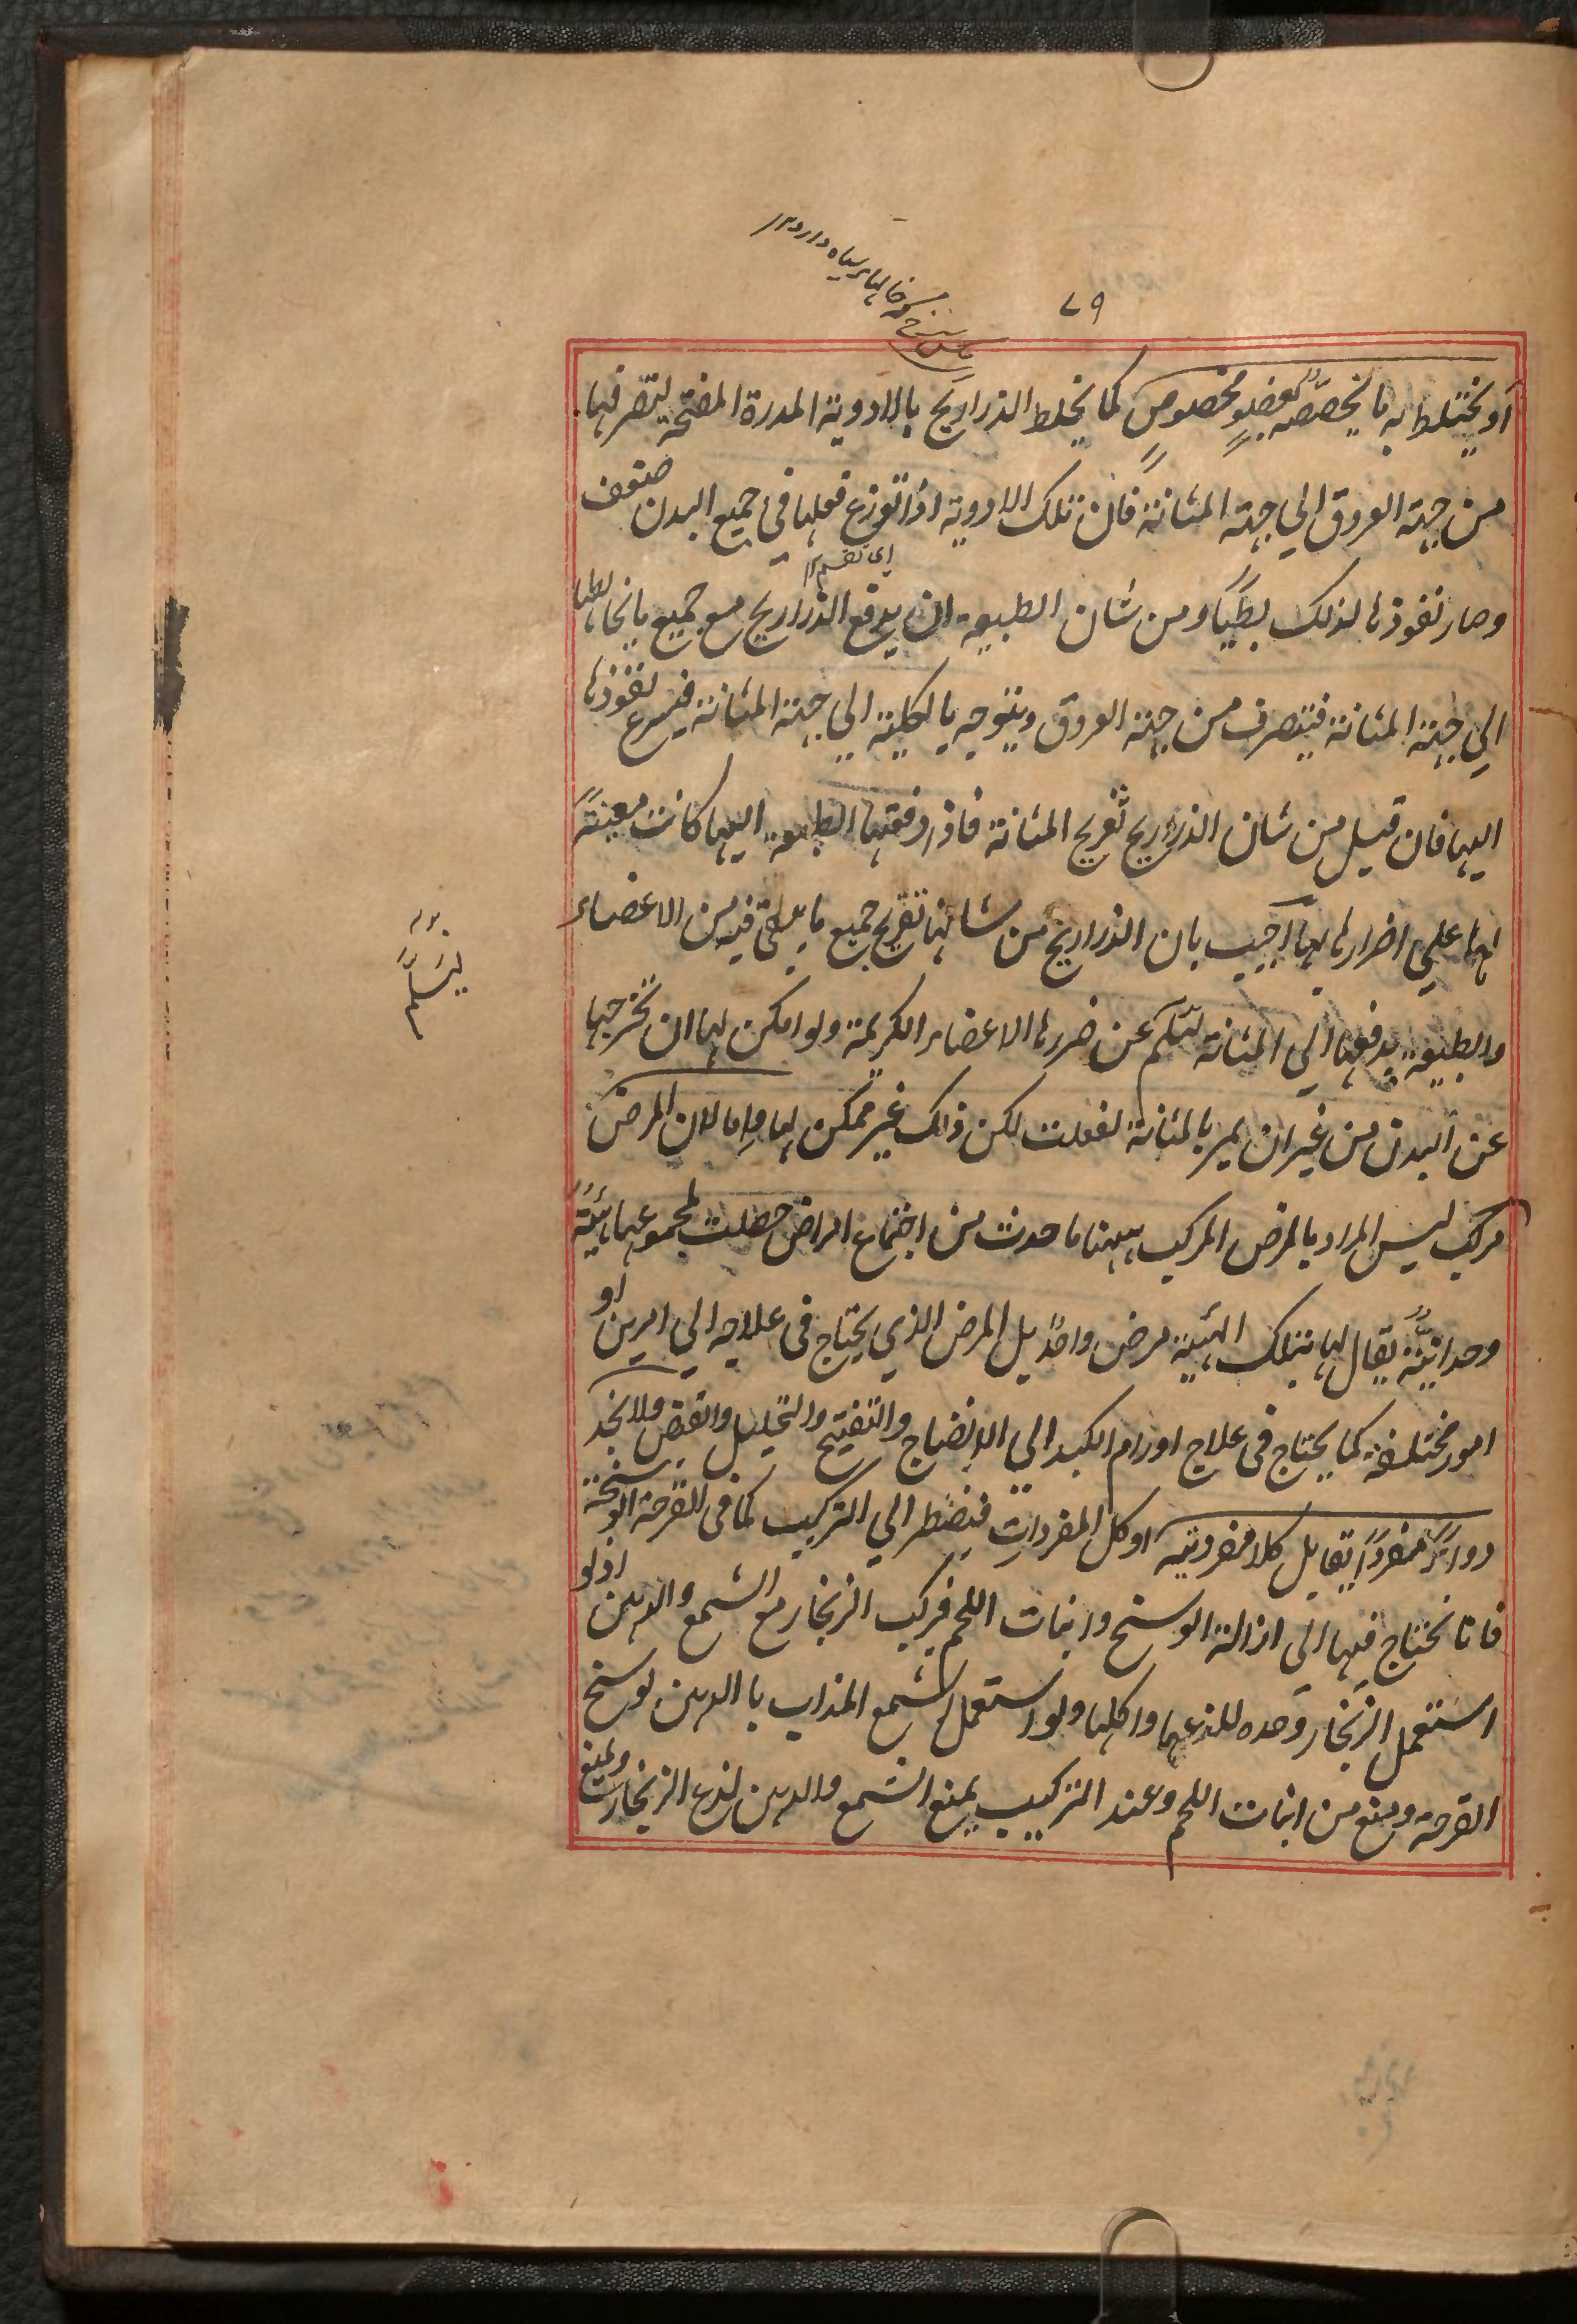 ٧٩
او يختلط به ما يخصّصه بعضوٍ مخصوصٍ كما يخلط الذراريح بالادوية المدرة المفتحة لتصرفها
من جهة العروق الي جهة المثانة فان تلك الادوية اذا توزع فعلها في جميع البدن ضعف
اي تقسم
وصار نفوذها لذلك بطيًا ومن شان الطبيعة ان يدفع الذراريح مع جميع ما يخالطها
الي جهة المثانة فيتصرف من جهة العروق ويتوجه بالكلية الي جهة المثانة فيسرع نفوذها
اليها فان قيل من شان الذراريح تقريح المثانة فاذا دفعتها الطبيعة اليها كانت معينةً
لها علي اضرارها بها اجيب بان الذراريح من شانها تقريح جميع ما يلاقيه من الاعضاء
والطبيعة يدفعها الي المثانة ليسلم عن ضررها الاعضاء الكريمة ولو امكن لها ان تخرجها
ليسلم
عن البدن من غير ان يمر بالمثانة لفعلت لكن ذلك غير ممكن لها واما لان المرض
مركب ليس المراد بالمرض المركب ههنا ما حدث من اجتماع امراض حصلت لمجموعها هيئةً
وحدانيةً يقال لها بتلك الهيئة مرض واحدٌ بل المرض الذي يحتاج في علاجه الي امرين او
امور مختلفة كما يحتاج في علاج اورام الكبد الي الانضاج والتفتيح والتحليل والقبض ولا نجد
دواءً مفردًا يقابل كلا مفرديه او كل المفردات فيضطر الي التركيب كما في القرحة الوسخة
فانا نحتاج فيها الي ازالة الوسخ وانبات اللحم فيركب الزنجار مع الشمع والدهن اذ لو
استعمل الزنجار وحده للذعها واكلها ولو استعمل الشمع المذاب با الدهن لوسخ
القرحة ومنع من انبات اللحم وعند التركيب يمنع الشمع والدهن لذع الزنجار ويمنع